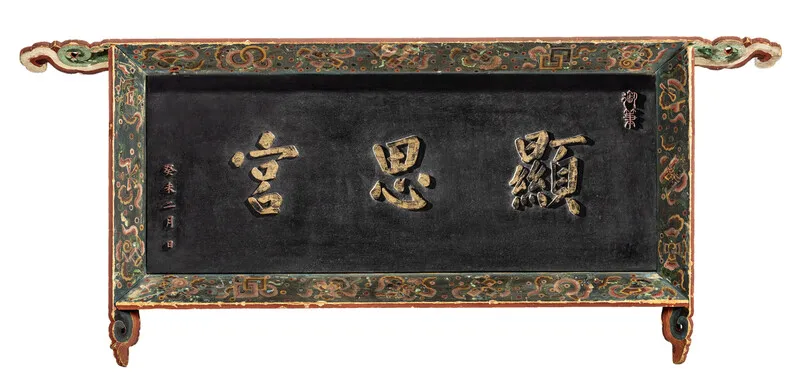 御筆
顯思宮
癸未二月日